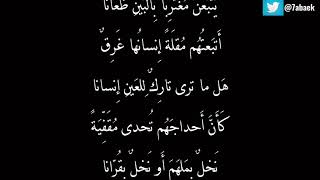 @7abaek
يَتبَعنَ مُغتَرِبًا بِالبَينِ ظَعّانا
أَتبَعتُهُم مُقلَةً إِنسانُها غَرِقٌ
هَل ما تَرى تارِكٌ لِلعَينِ إِنسانا
كَأَنَّ أَحداجَهُم تُحدى مُقَفِّيَةً
نَخلٌ بِمَلهَمَ أَو نَخلٌ بِقُرّانا